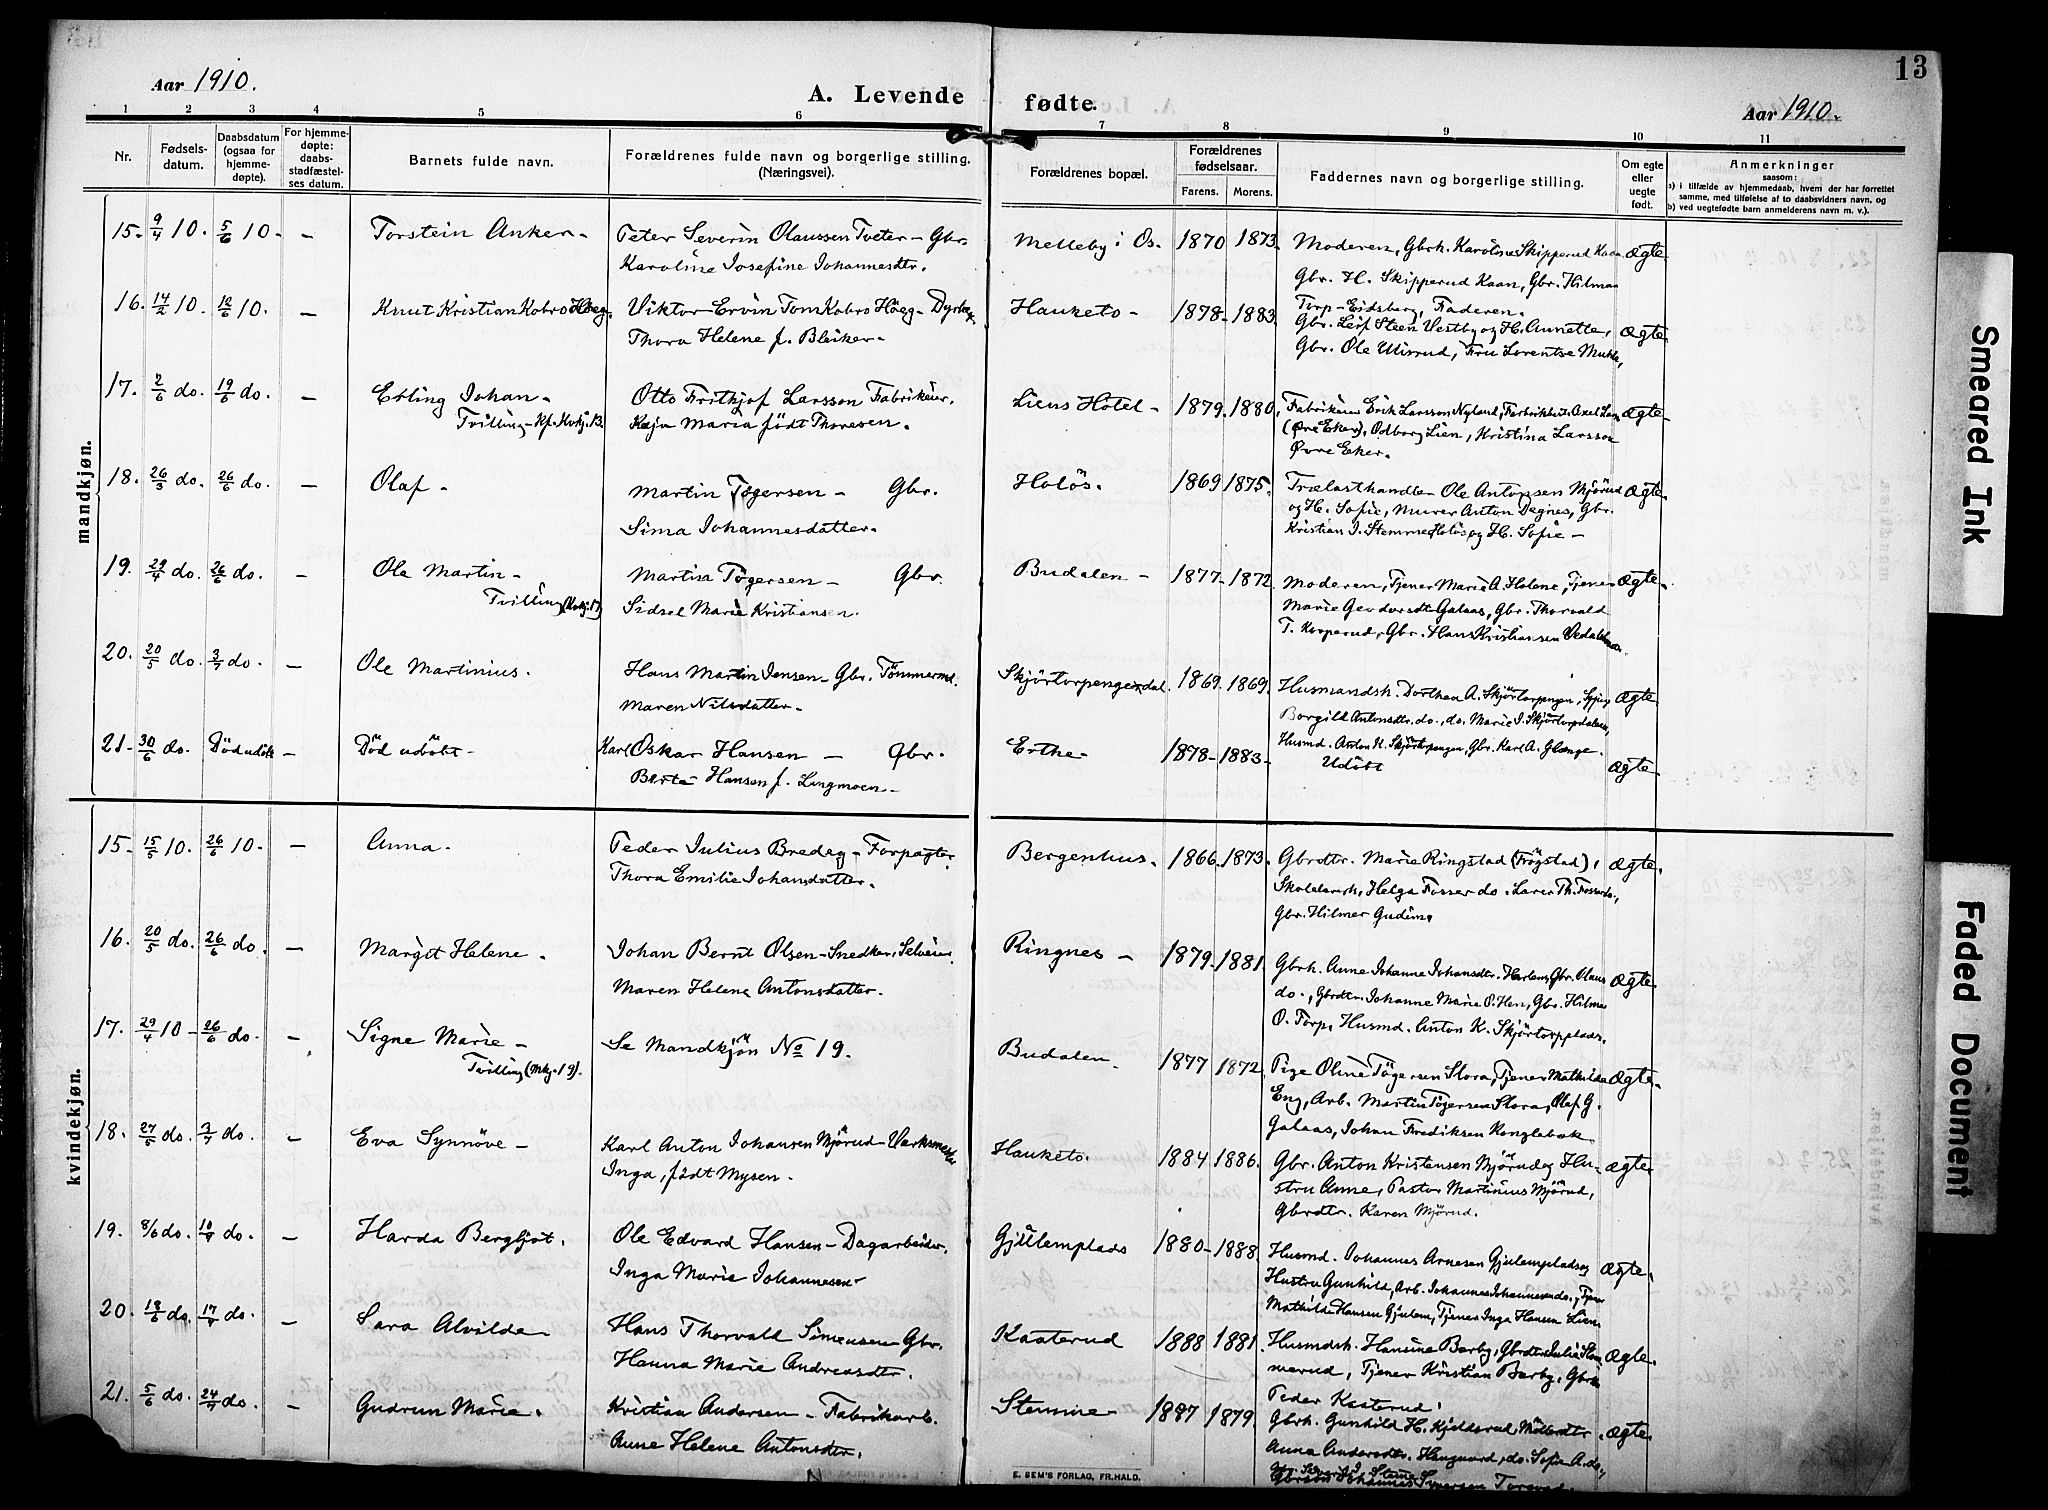 13
Aar 1910.
A. Levende fødte.
Aar 1910.
1 2 3 4 5 6 7 8 9 10 11
Nr.
Fødsels-
datum.
Daabsdatum
(ogsaa for
hjemme-
døpte).
For hjemme-
døpte:
daabs-
stadfæstel-
ses datum.
Barnets fulde navn.
Forældrenes fulde navn og borgerlige stilling.
(Næringsvei).
Forældrenes bopæl.
Forældrenes
fødselsaar.
Farens. Morens.
Faddernes navn og borgerlige stilling.
Om egte
eller
uegte
født.
Anmerkninger
saasom:
a) i tilfælde av hjemmedaab, hvem der har forrettet
samme, med tilføielse af to daabsvidners navn, og
b) ved uegtefødte barn anmelderens navn m. v.).
mandkjøn.
15. 9/4 10. 5/6 10. - Torstein Anker. Peter Severin Olaussen Tveter - Gbr. Melleby i Os. 1870 1873. Moderen, Gbrh. Karoline Skipperud Kaan, Ægte
Karoline Josefine Johannesdtr. Gbr. H. Skipperud Kaan, Gbr. Hilmar
Torp - Eidsberg, Faderen.
16. 14/2 10. 12/6 10. - Knut Kristian Kobro Höeg. Viktor Ervin Tom Kobro Höeg - Dyrlæge Hauketo - 1878 - 1883. Gbr. Leif Steen Vestby og H. Annette, Ægte.
Thora Helene f. Bleiker. Gbr. Ole Ulsrud, Fru Lorentse
17. 2/6 do. 19/6 do. - Erling Johan - Otto Frithjof Larsson Fabrikeier. Liens Hotel - 1879. 1880. Fabrikeier Erik Larsson Nyland, Axel Ægte.
Tvilling - Kaja Maria født Thoresen. (Øvre Eker), Odborg Lien, Kristina Larsson
Øvre Eker.
18. 26/3 do. 26/6 do. - Olaf - Martin Tögersen - Gbr. Holös. 1869 1875. Trælasthandler Ole Antonsen Mjörud Ægte.
Sima Johannesdatter. og H. Sofie, Murer Anton Degnes, Gbr.
Kristian J. Stemme Holös og H. Sofie -
19. 29/4 do. 26/6 do. - Ole Martin - Martin Tögersen - Gbr. Budalen - 1877 - 1872. Moderen, Tjener Marie A. Holene, Tjener Ægte.
Tvilling (Kvkj. 17) Sidsel Marie Kristiansen. Marie Galaas, Gbr. Thorvald
T. Korperud, Gbr. Hans Kristiansen
20. 20/5 do. 3/7 do. - Ole Martinius. Hans Martin Jensen - Gbr. Tömmermd. Skjörtorpengen, dal. 1869. 1869. Husmandsk. Dorthea A. Skjörtorpengen, Ægte
Maren Nilsdatter. Borgild Antonsdtr. do., do. Marie J. Skjörtorpdalen,
Husmd. Anton K. Skjörtorpengen, Gbr. Karl A. Glenge.
21 - 30/6 do. Död udöbt - Död udöbt - Karl Oskar Hansen - Gbr. Ertke - 1878 - 1883 - Udöbt Ægte.
Berte Hansen f. Lingmoen -
kvindekjøn.
15. 15/5 10. 26/6 10. - Anna. Peder Julius Bredeg - Forpagter Bergenhus. 1866. 1873. Gbrdtr. Marie Ringstad (Trögstad), Ægte.
Thora Emilie Johansdatter. Helga Fosser do. Lærer Th. Fosser do.,
Gbr. Hilmer Gudim.
16. 20/5 do. 26/6 do. - Margit Helene. Johan Bernt Olsen - Snedker, Selveier Ringnes - 1879. 1881. Gbrh. Anne Johanne Johansdtr. Gbr. Olaus Ægte.
Maren Helene Antonsdatter. do., Gbrdtr. Johanne Marie O. Gbr. Hilmar
O. Torp, Husmd. Anton K. Skjörtorpplads.
17. 29/4 10 - 26/6 do. - Signe Marie - Se Mandkjön No 19. Budalen. 1877 1872. Pige Oline Tögersen Slora, Tjener Mathilde Ægte.
Tvilling (Mkj. 19). Eng, Arb. Martin Tögersen Slora, Olaf G.
Galaas, Johan Frediksen Konglebæk
18. 27/5 do. 3/7 do. - Eva Synnöve - Karl Anton Johansen Mjörud - Værksmester Hauketo. 1884 1886. Gbr. Anton Kristensen Mjörud og Hu- Ægte
Inga, født Mysen. stru Anne, Pastor Martinius Mjörud,
Gbrdtr. Karen Mjörud.
19. 8/6 do. 10/7 do. - Harda Bergljot. Ole Edvard Hansen - Dagarbeider. Gjulemplads 1880 - 1888. Husmd. Johannes Arnesen Gjulemplads og Ægte.
Inga Marie Johannesen. Hustru Gunhild, Arb. Johannes Johannesen do., Tjener
Mathilde Hansen Gjulem, Tjener Inga Hansen Lien
20. 18/6 do. 17/7 do. - Sara Alvilde Hans Thorvald Simensen Gbr. Kaaterud 1888 1881. Husmdsk. Hansine Barby, Gbrdtr. Julie Ægte.
Hanna Marie Andreasdtr. Tjener Kristian Barby, Gbr.
Peder Kaaterud.
21. 5/6 do. 24/7 do. - Gudrun Marie. Kristian Andersen - Fabrikarb. Stemme - 1887 1879. Gbrh. Gunhild H. Kjeldsrud, Ægte.
Anne Helene Antonsdtr. Anna Andersdtr. do. Sofie A. do.,
Johannes
E. SEM'S FORLAG, FR.HALD.
Smeared Ink
Faded Document